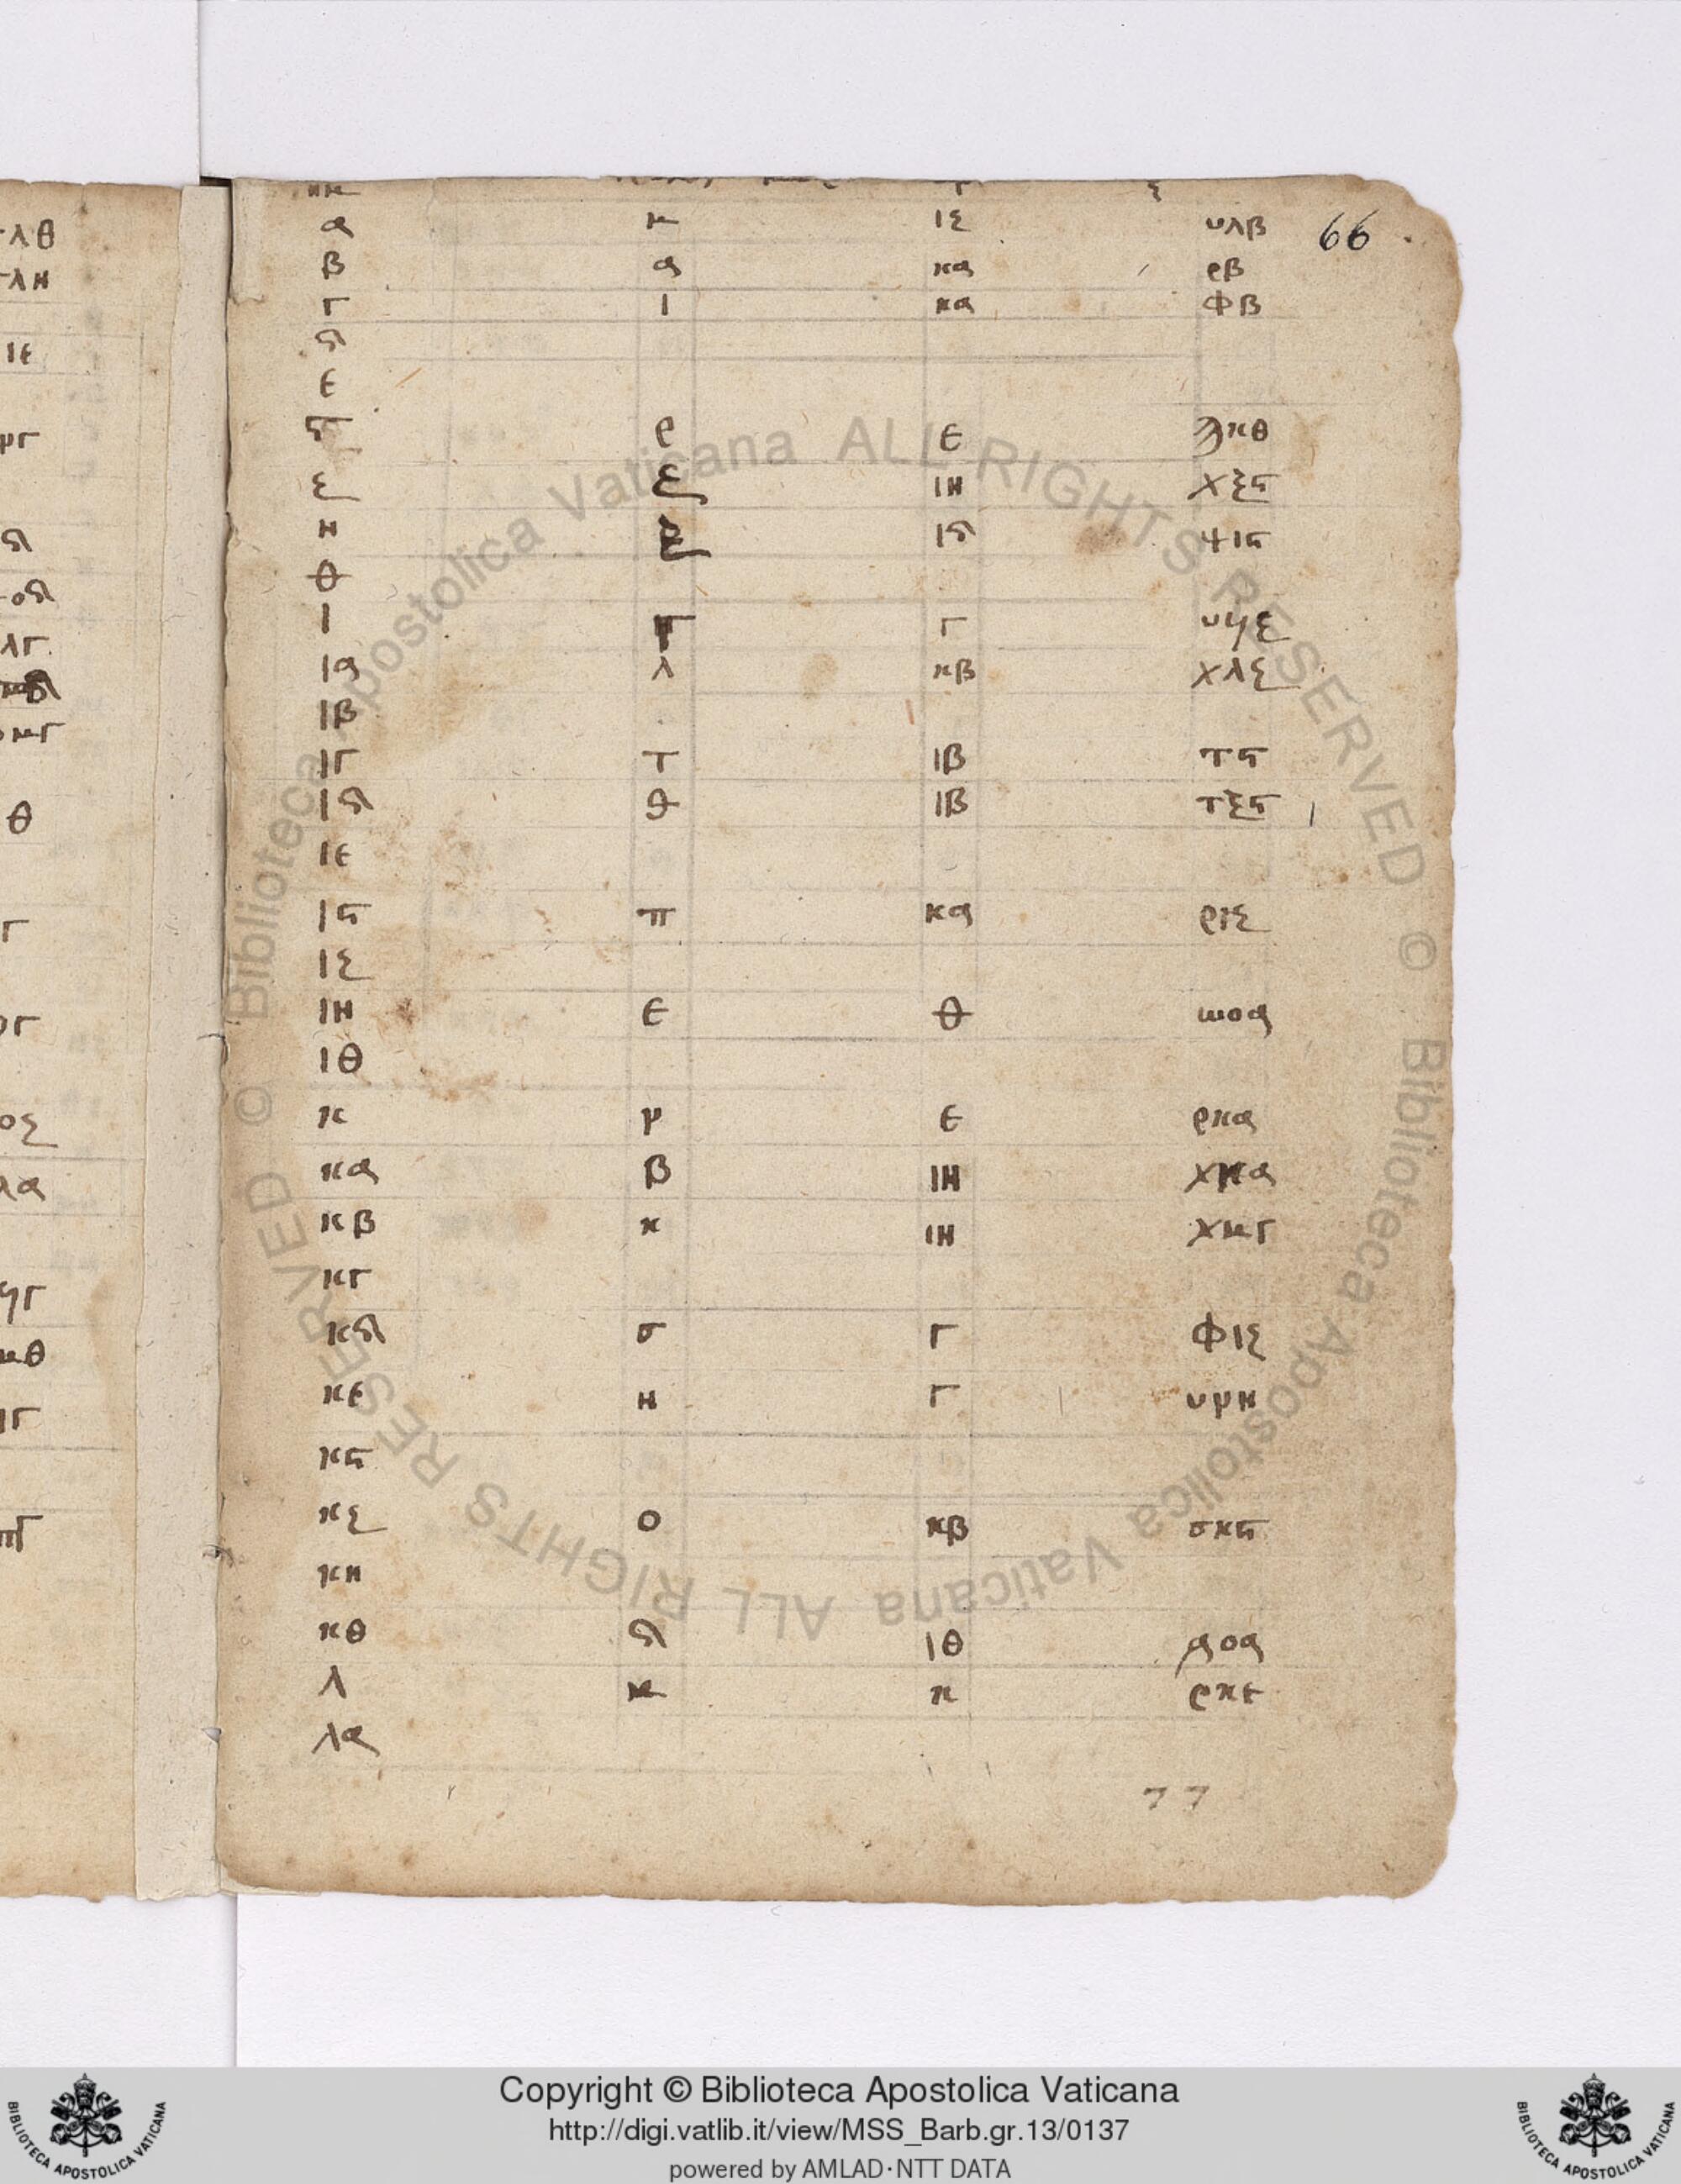 α κ ιζ υλβ 66
β α κα ρβ
γ ι κα φβ
δ
ε
ϛ ρ ε ϡκθ
ζ ζ ιη χξϛ
η ιδ ψιϛ
θ
ι γ υϟζ
ια λ κβ χλζ
ιβ
ιγ τ ιβ τϛ
ιδ θ ιβ τξϛ
ιε
ιϛ π κα ριζ
ιζ
ιη ε θ ωοα
ιθ
κ μ ε ρκα
κα β ιη χκα
κβ κ ιη χκγ
κγ
κδ σ γ φιζ
κε η γ υμη
κϛ
κζ ο κβ σκϛ
κη
κθ δ ιθ ͵αοα
λ κ κ ρκε
λα
77
λθ
λη
ιε
δ
οδ
λγ
θ
οζ
λα
ϟγ
κθ
Copyright © Biblioteca Apostolica Vaticana
http://digi.vatlib.it/view/MSS_Barb.gr.13/0137
powered by AMLAD·NTT DATA
BIBLIOTECA APOSTOLICA VATICANA
BIBLIOTECA APOSTOLICA VATICANA
© Biblioteca Apostolica Vaticana ALL RIGHTS RESERVED © Biblioteca Apostolica Vaticana ALL RIGHTS RESERVED